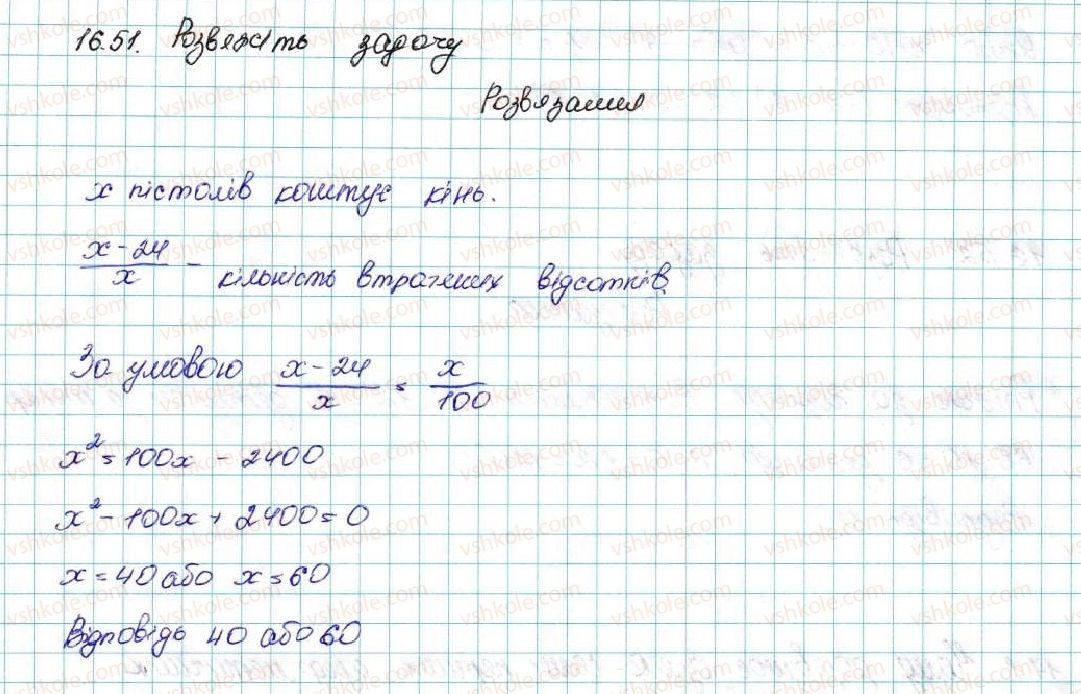 16.51. Розвяжіть задачу
Розвязання
x пістолів коштує кінь.
x - 24 / x - кількість втрачених відсотків.
За умовою x - 24 / x = x / 100
x² = 100x - 2400
x² - 100x + 2400 = 0
x = 40 або x = 60
Відповідь 40 або 60